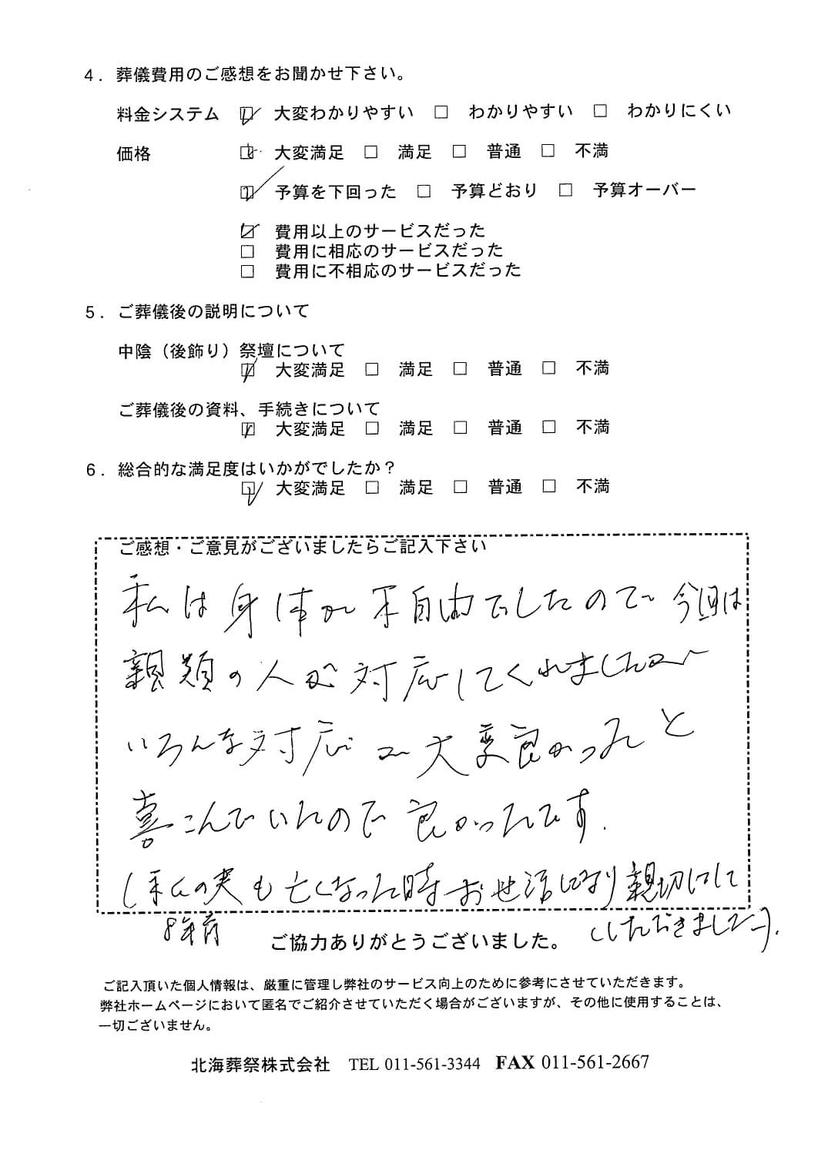 4．葬儀費用のご感想をお聞かせ下さい。
料金システム ☑ 大変わかりやすい □ わかりやすい □ わかりにくい
価格 ☑ 大変満足 □ 満足 □ 普通 □ 不満
☑ 予算を下回った □ 予算どおり □ 予算オーバー
☑ 費用以上のサービスだった
□ 費用に相応のサービスだった
□ 費用に不相応のサービスだった
5．ご葬儀後の説明について
中陰（後飾り）祭壇について
☑ 大変満足 □ 満足 □ 普通 □ 不満
ご葬儀後の資料、手続きについて
☑ 大変満足 □ 満足 □ 普通 □ 不満
6．総合的な満足度はいかがでしたか？
☑ 大変満足 □ 満足 □ 普通 □ 不満
ご感想・ご意見がございましたらご記入下さい
私は身体が不自由でしたので今回は
親類の人が対応してくれましたが
いろんな対応が大変良かったと
喜こんでいたので良かったです.
(私の夫も亡くなった時お世話になり親切にして
8年前
いただきました).
ご協力ありがとうございました。
ご記入頂いた個人情報は、厳重に管理し弊社のサービス向上のために参考にさせていただきます。
弊社ホームページにおいて匿名でご紹介させていただく場合がございますが、その他に使用することは、
一切ございません。
北海葬祭株式会社 TEL 011-561-3344 FAX 011-561-2667